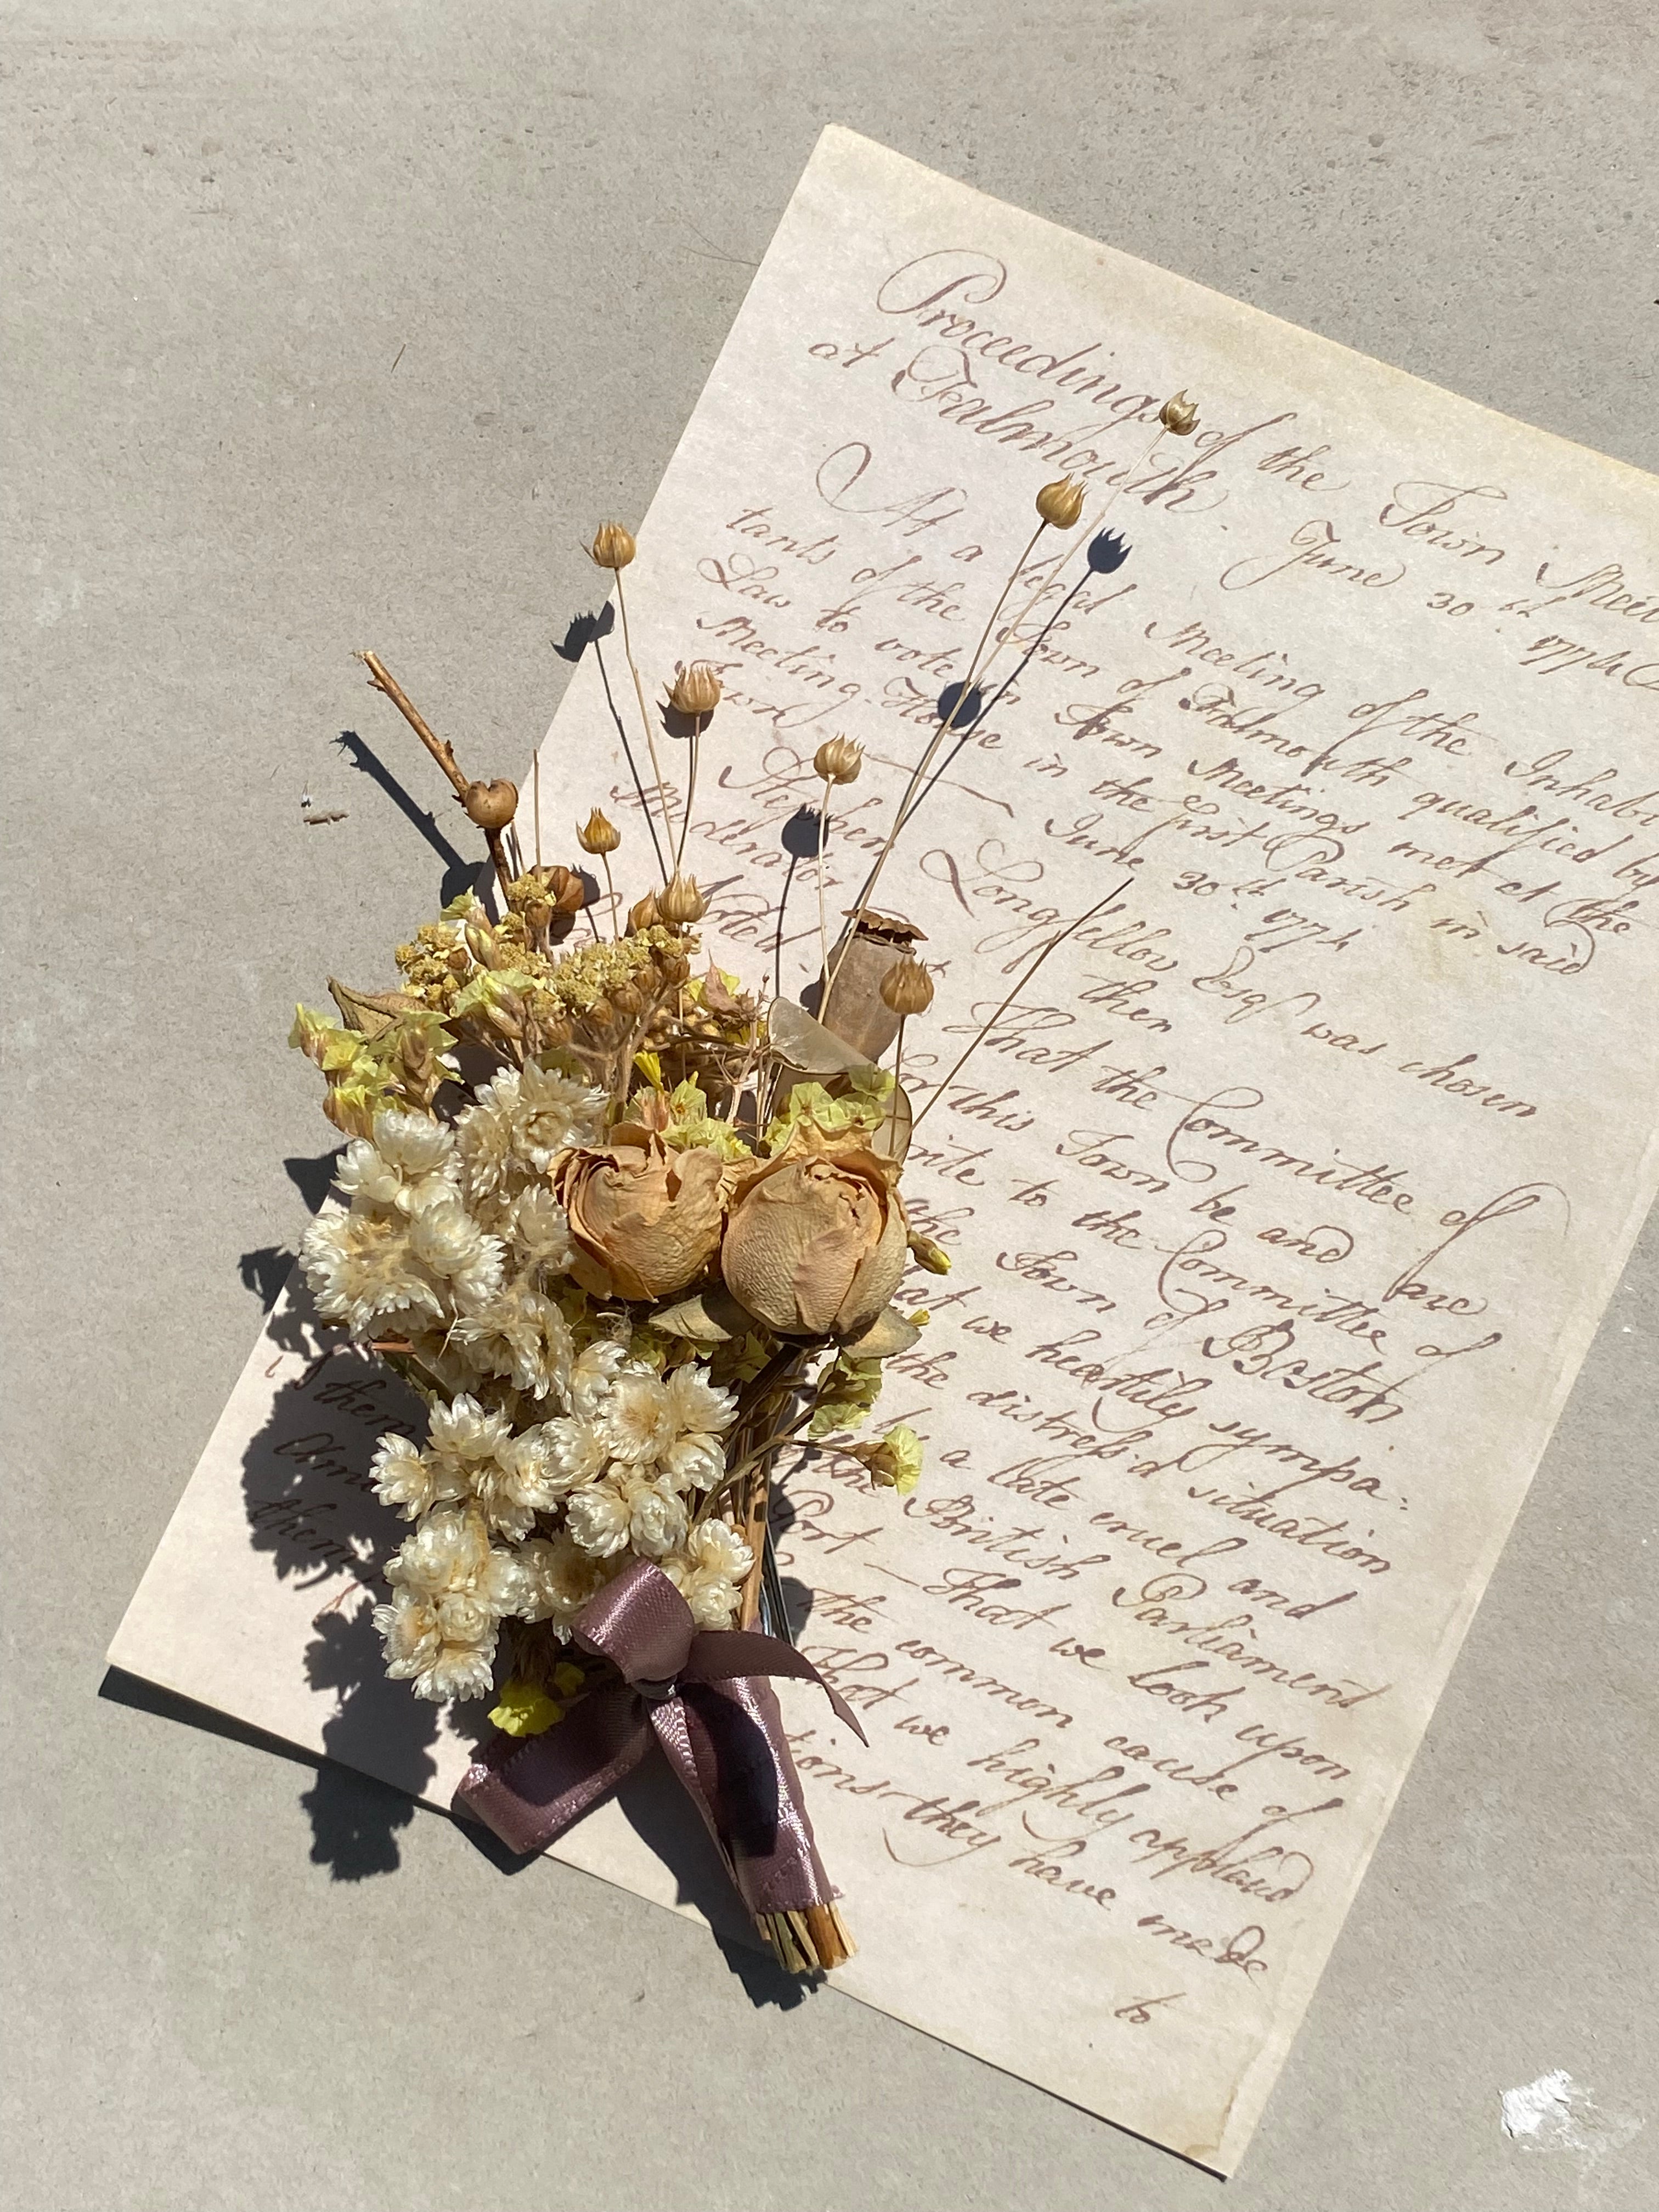 Proceedings of the Town
at Falmouth. June 30th 1774
At a legal Meeting of the Inhabi
tants of the Town of Falmouth qualified by
Law to vote in Town Meetings met at the
Meeting-House in the first Parish in said
Town June 30th. 1774
Stephen Longfellow Esqr was chosen
Moderator then
Voted That the Committee of
for this Town be and are
to the Committee of
the Town of Boston
that we heartily sympa:
the distress'd situation
by a late cruel and
the British Parliament
Port — That we look upon
the common cause of
them That we highly applaud
they have made
them
to